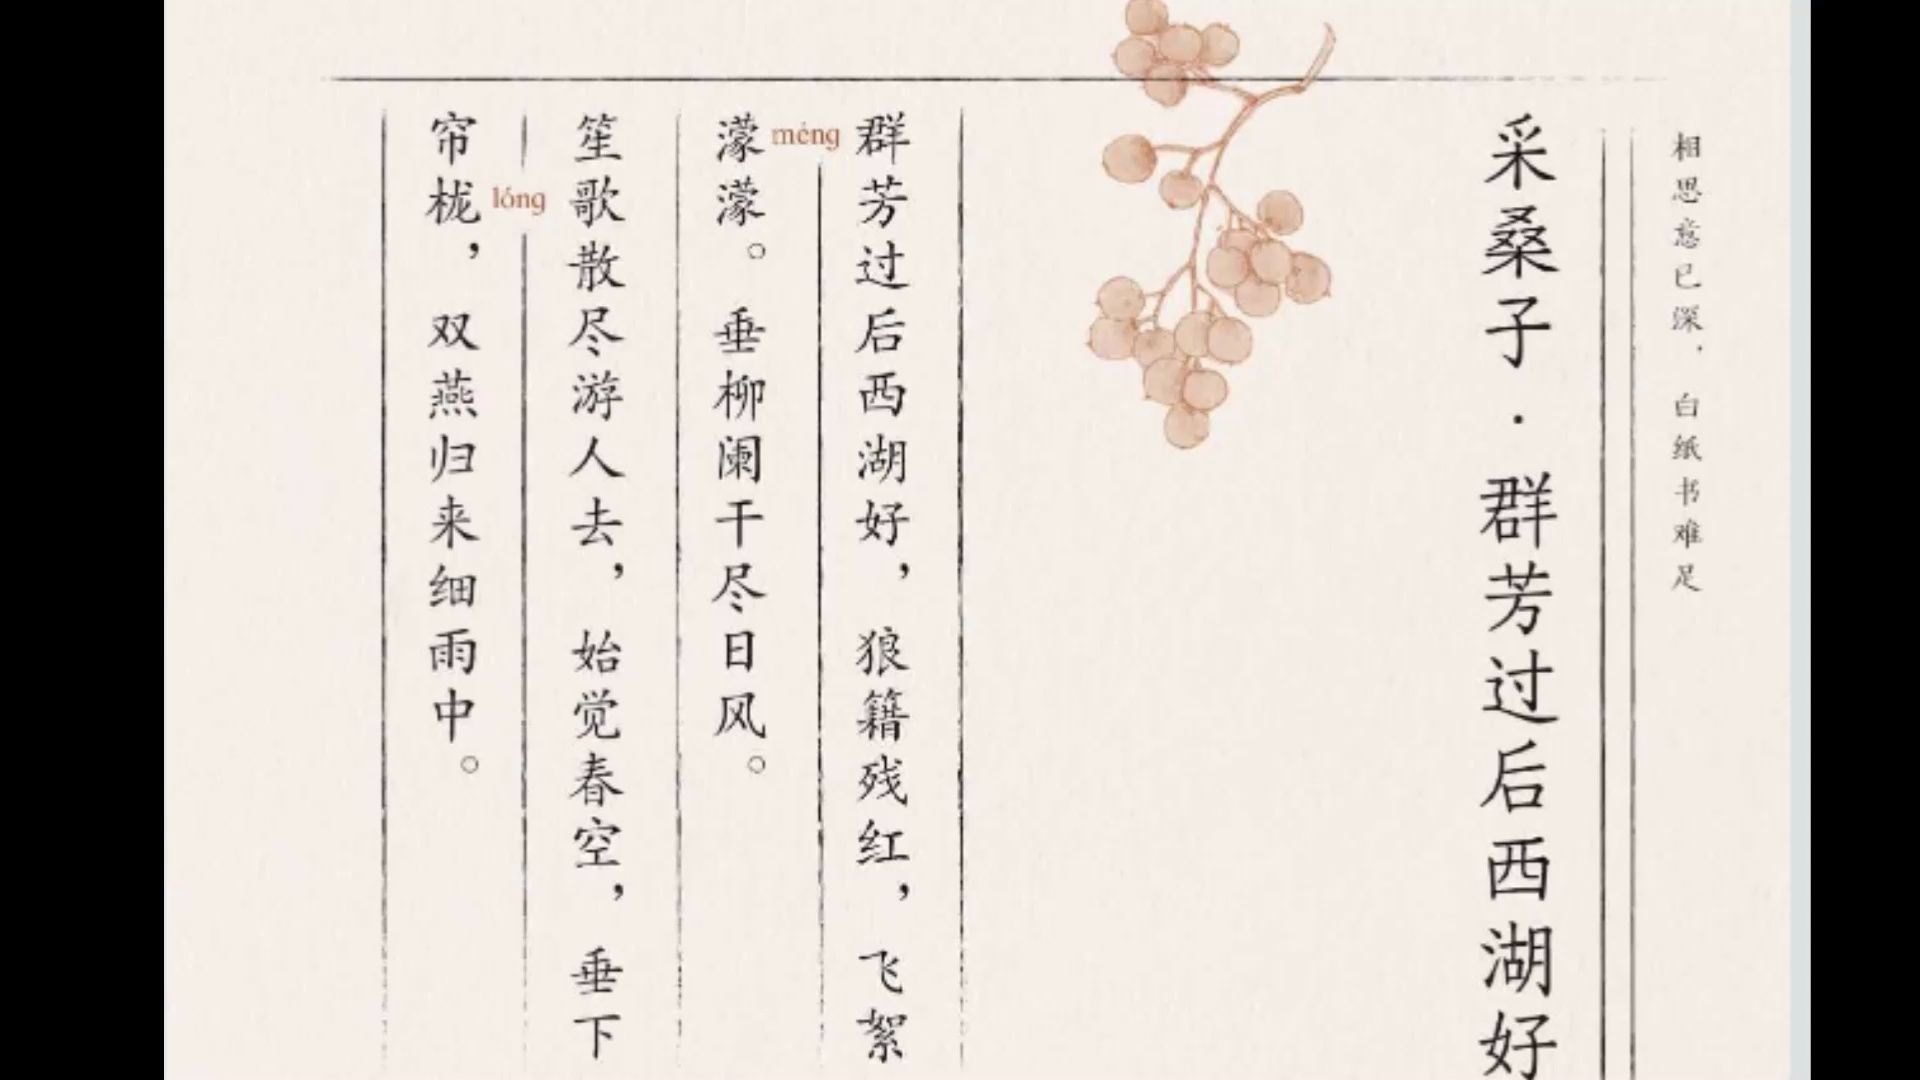 相思意已深，白纸书难足
采桑子·群芳过后西湖好
群芳过后西湖好，狼籍残红，飞絮
méng
濛濛。垂柳阑干尽日风。
笙歌散尽游人去，始觉春空，垂下
lóng
帘栊，双燕归来细雨中。